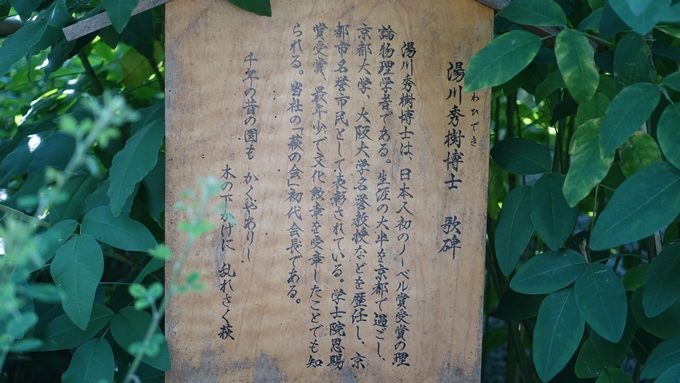 湯川秀樹博士 歌碑
わひでき
湯川秀樹博士は、日本人初のノーベル賞受賞の理
論物理学者である。生涯の大半を京都で過ごし、
京都大学、大阪大学名誉教授などを歴任し、京
都市名誉市民として表彰されている。学士院恩賜
賞受賞、最年少で文化勲章を受章したことでも知
られる。当社の「萩の会」初代会長である。
千年の昔の園も かくやありし
木の下かげに 乱れさく萩